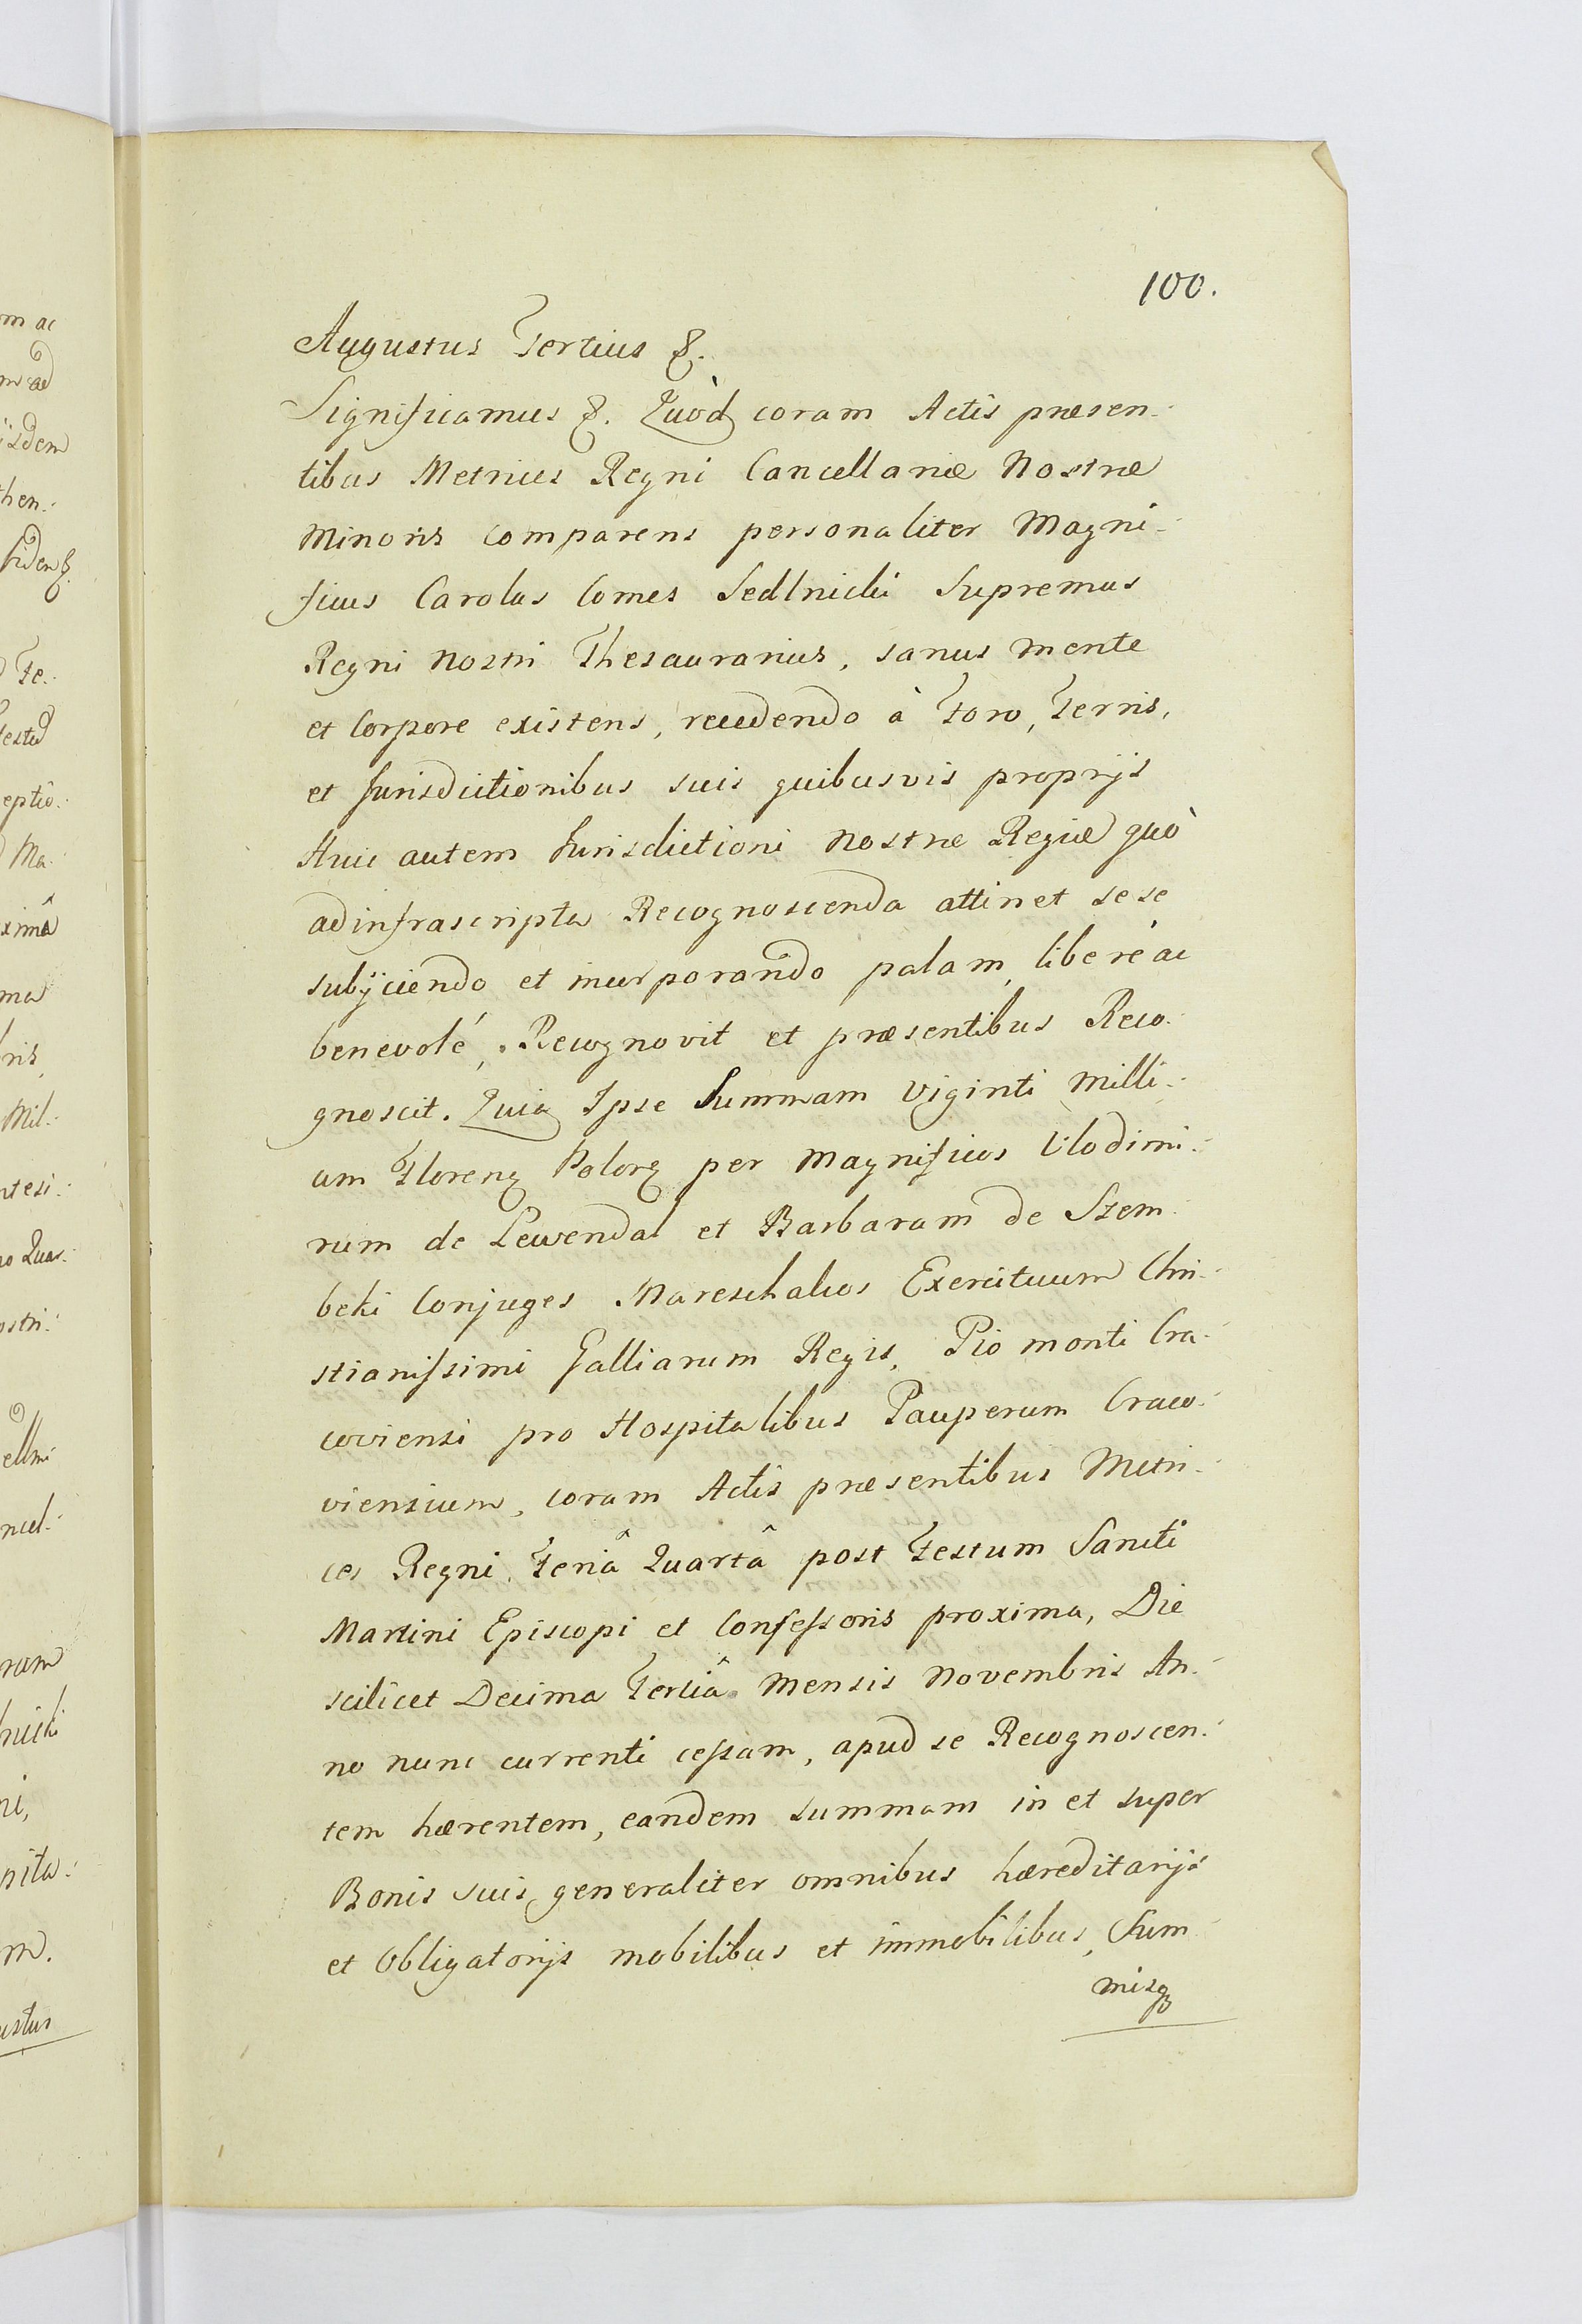 100.
Augustus Tertius &.
Significamus &. Quòd coram Actis præsen-
tibus Metrices Regni Cancellariæ Nostræ
Minoris comparens personaliter Magni-
ficus Carolus Comes Sedlnicki Supremus
Regni Nostri Thesaurarius, sanus mente
et Corpore existens, recedendo à Foro, Terris,
et Jurisdictionibus suis quibusvis proprijs
Huic autem Jurisdictioni Nostræ Regiæ quò
ad infrascripta Recognoscenda attinet sese
subijciendo et incorporando palam, liberè ac
benevolé, Recognovit et præsentibus Reco-
gnoscit. Quia Ipse Summam Viginti Milli-
um Florenꝝ Polorꝝ per Magnificos Vlodimi-
rum de Lewendal et Barbaram de Szem-
beki Conjuges Mareschalcos Exercituum Chri-
stianissimi Galliarum Regis, Pio monti Cra-
coviensi pro Hospitalibus Pauperum Craco-
viensium, coram Actis præsentibus Metri-
ces Regni Feriâ Quartâ post Festum Sancti
Martini Episcopi et Confessoris proxima, Die
scilicet Decima Tertiâ Mensis Novembris An-
no nunc currenti cessam, apud se Recognoscen-
tem hærentem, eandem summam in et super
Bonis suis generaliter omnibus hæreditarijs
et Obligatorijs mobilibus et immobilibus, Sum
misqꝫ
om ac
m ad
ijsdem
then-
Fe-
eptio-
Ma-
ximâ
ma
ris,
Mil-
ntesi-
no Quar-
ostri-
ellmi
ncel-
rum
nicki
ni,
pita-
m.
ustus